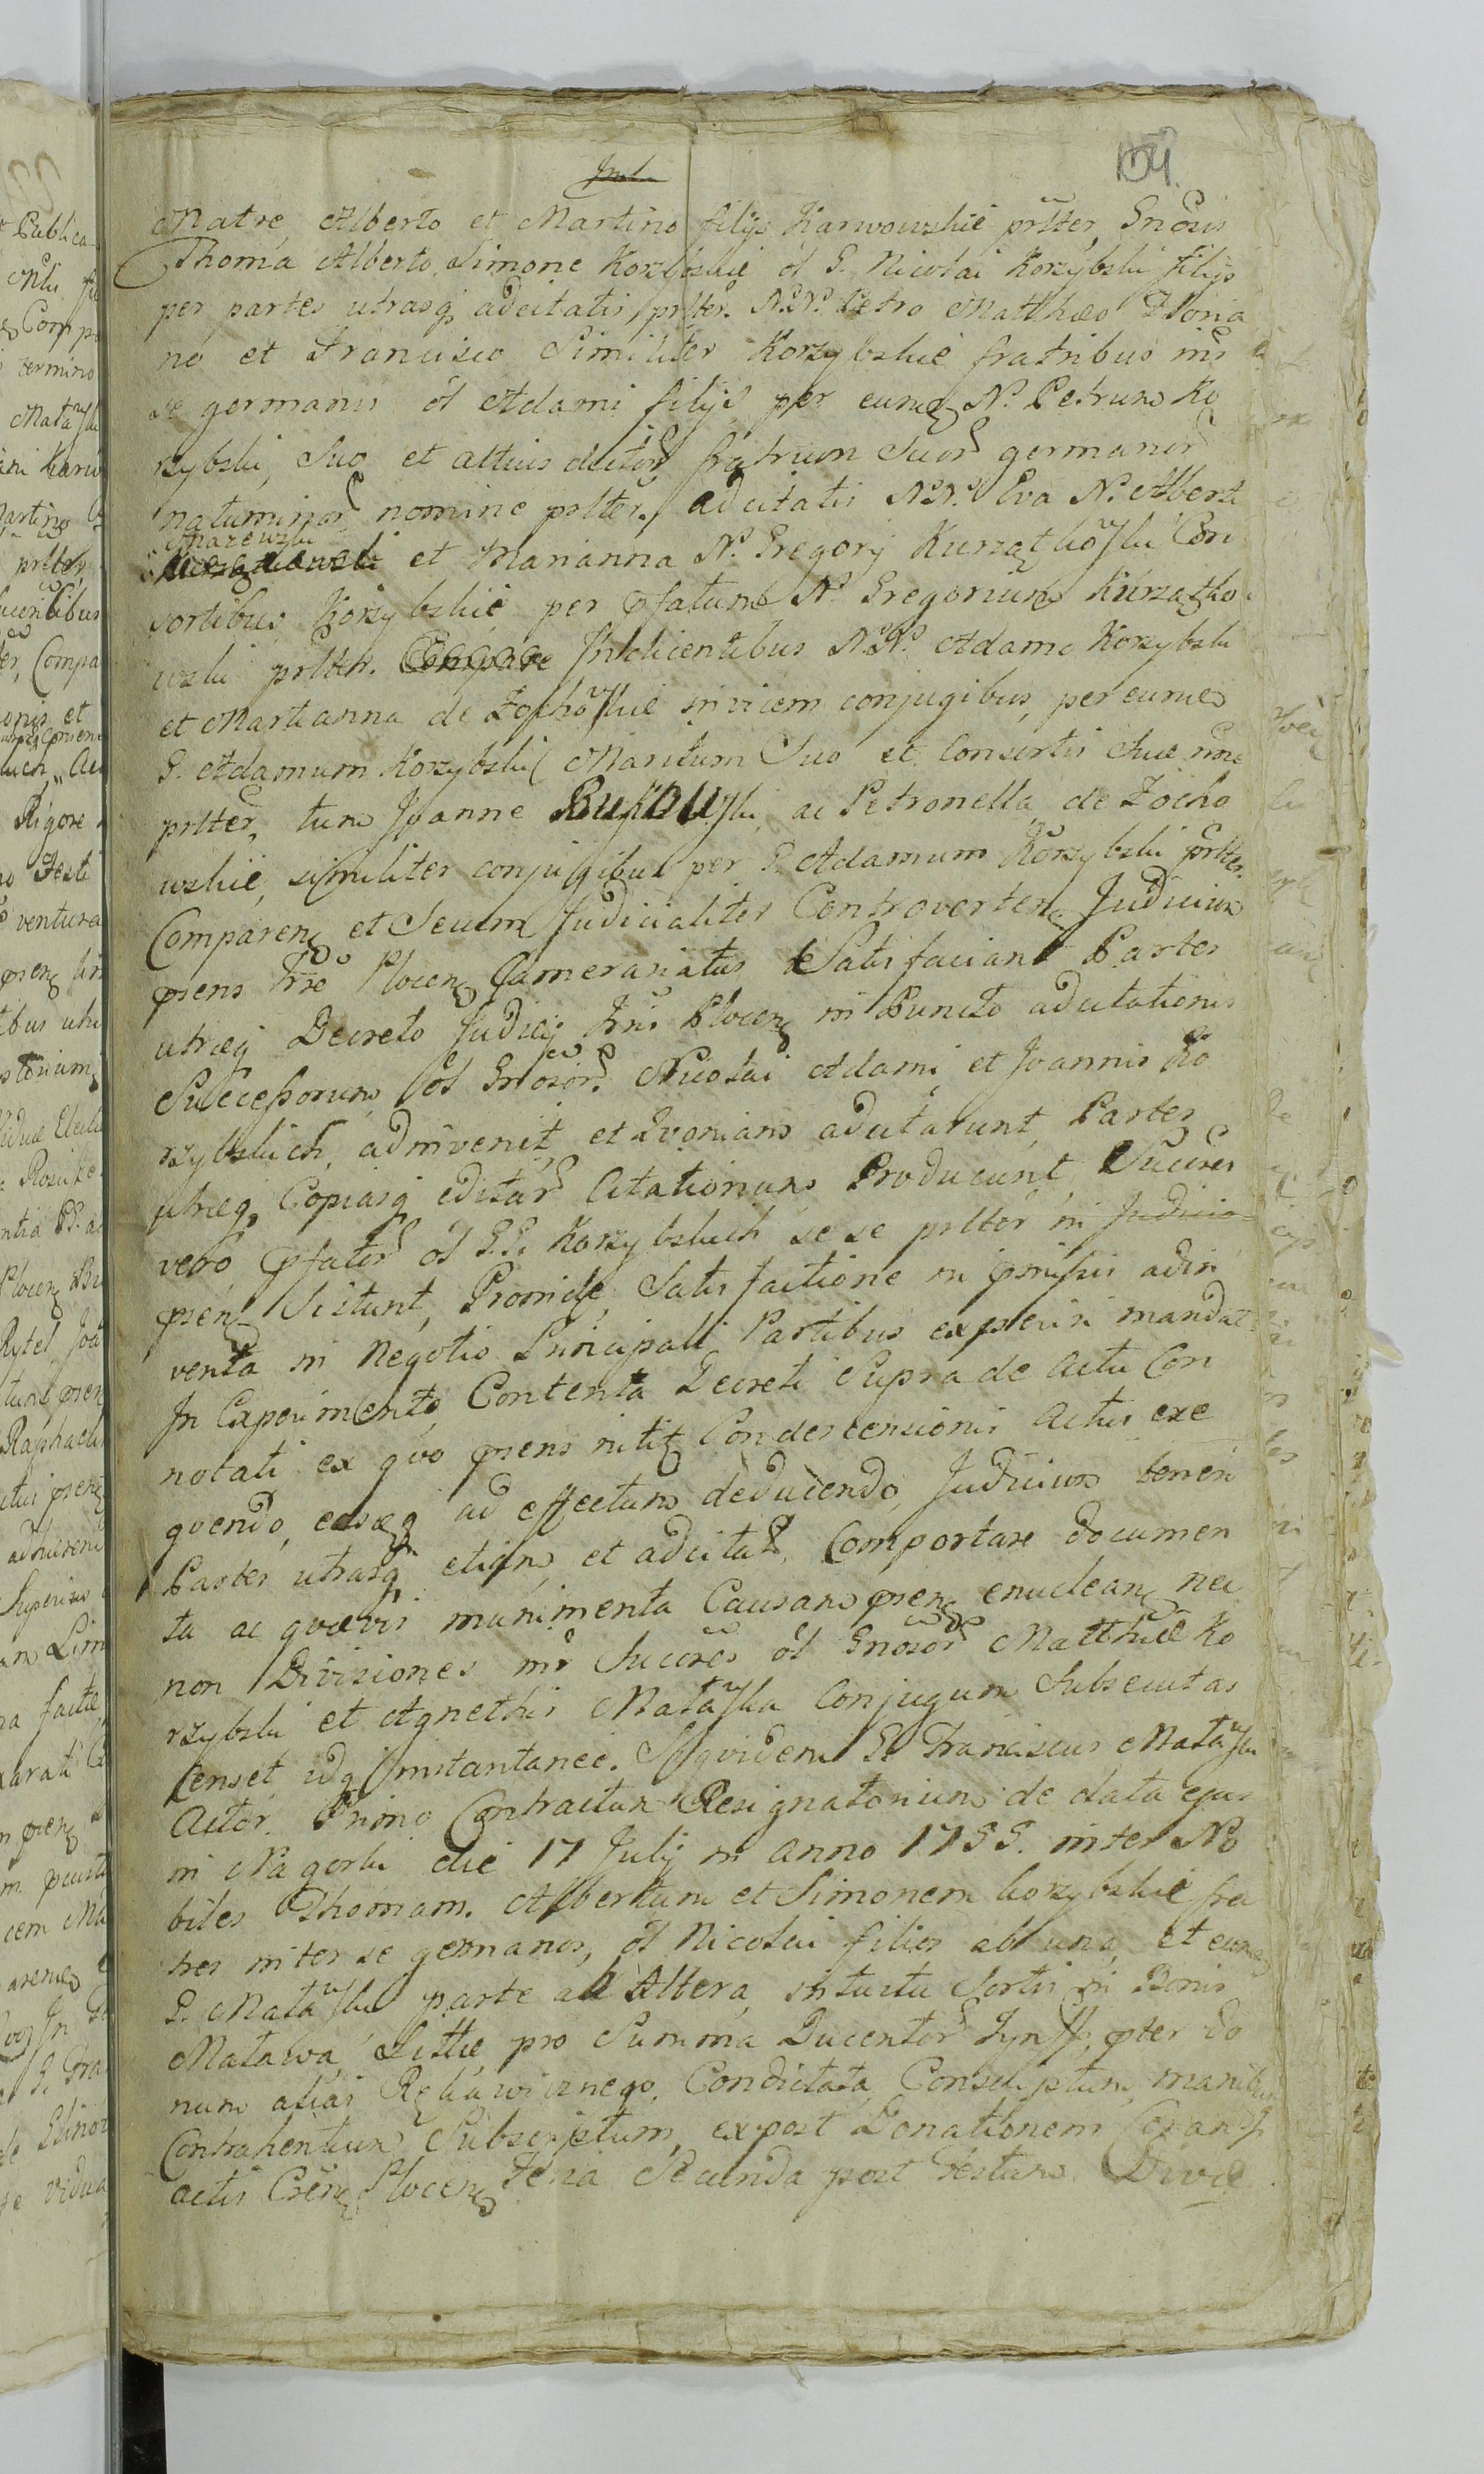 104.
Matre, Alberto et Martino filijs Karwowskie prltter, Gnosis
Thoma Alberto Simone Korzybskie ol G. Nicolai Korzybski filijs
per partes utrasq adcitatis prltter. N.N. Petro Matthæo Floria
no et Francisco Similiter Korzybskie fratribus inr
se germanis ol Adami filijs per eunq N. Petrum Ko
rzybski, Suo et attius dictor fratrum Suor germanor
natuminor nomine prltter. adcitatis N.N. Eva N. Albert
Mazewski et Marianna N. Gregorij Kurzątkoski Con
sortibus Korzybskie per pfatum N. Gregorium Kurzątko
wski prltter. Indicentibus N.N. Adamo Korzybski
et Martianna de Zochoskie invicem conjugibus, per eunq
G. Adamum Korzybski Maritum Suo et Consortis Suæ nne
prltter, tum Joanne ac Petronella de Zocho
wskie, similiter conjugibus per G. Adamum Korzybski prltter.
Comparen et Secum Judicialiter Controverten Judicium
prens Trre Plocen Camerariatus Satisfaciant Partes
utræq Decreto Judicij Trris Plocen in Puncto adcitationis
Successorum ol Gnosor. Nicolai Adami et Joannis Ko
rzybskich, adinvenit, et Qvoniam adcitarunt Partes
utræq, Copiasq editar Citationum Producunt, Succres
vero pfator ol G.G. Korzybskich se se prltter in Judicio
pren Sistunt, Proinde Satisfactione in pmissis adin
venta in Negotio Principali Partibus experiri mandat.
In Experimento Contenta Decreti Supra de Actu Con
notati ex qvo prens nitit Condescensionis Actus exe
qvendo, easq ad effectum deducendo, Judicium teneri
Partes utrasq etiam et adcitat, Comportare documen
ta ac qvævis munimenta Causam pren enuclean nec
non Divisiones inr Succres ol Gnosor Matthiæ Ko
rzybski et Agnethis Mataska Conjugum Subsecutas
Censet idq instantanee. Siqvidem G. Franciscus Mataski
Actor. Primo Contractum Resignatorium de data ejus
in Nagorki die 17 Julij in Anno 1755. inter No
biles Thomam. Albertum et Simonem Korzybskie fra
tres inter se germanos, ol Nicolai filios ab una, et eunq
G. Mataski parte ab Altera, intuitu Sortis in Bonis
Matawa Listie pro Summa Ducentor Tynff. pter do
num alias Rękawicznego. Condictata, Conscriptum, manibus
Contrahentium Subscriptum, expost Donationem Coram
actis Cren Plocen Feria Secunda post Festum Divæ